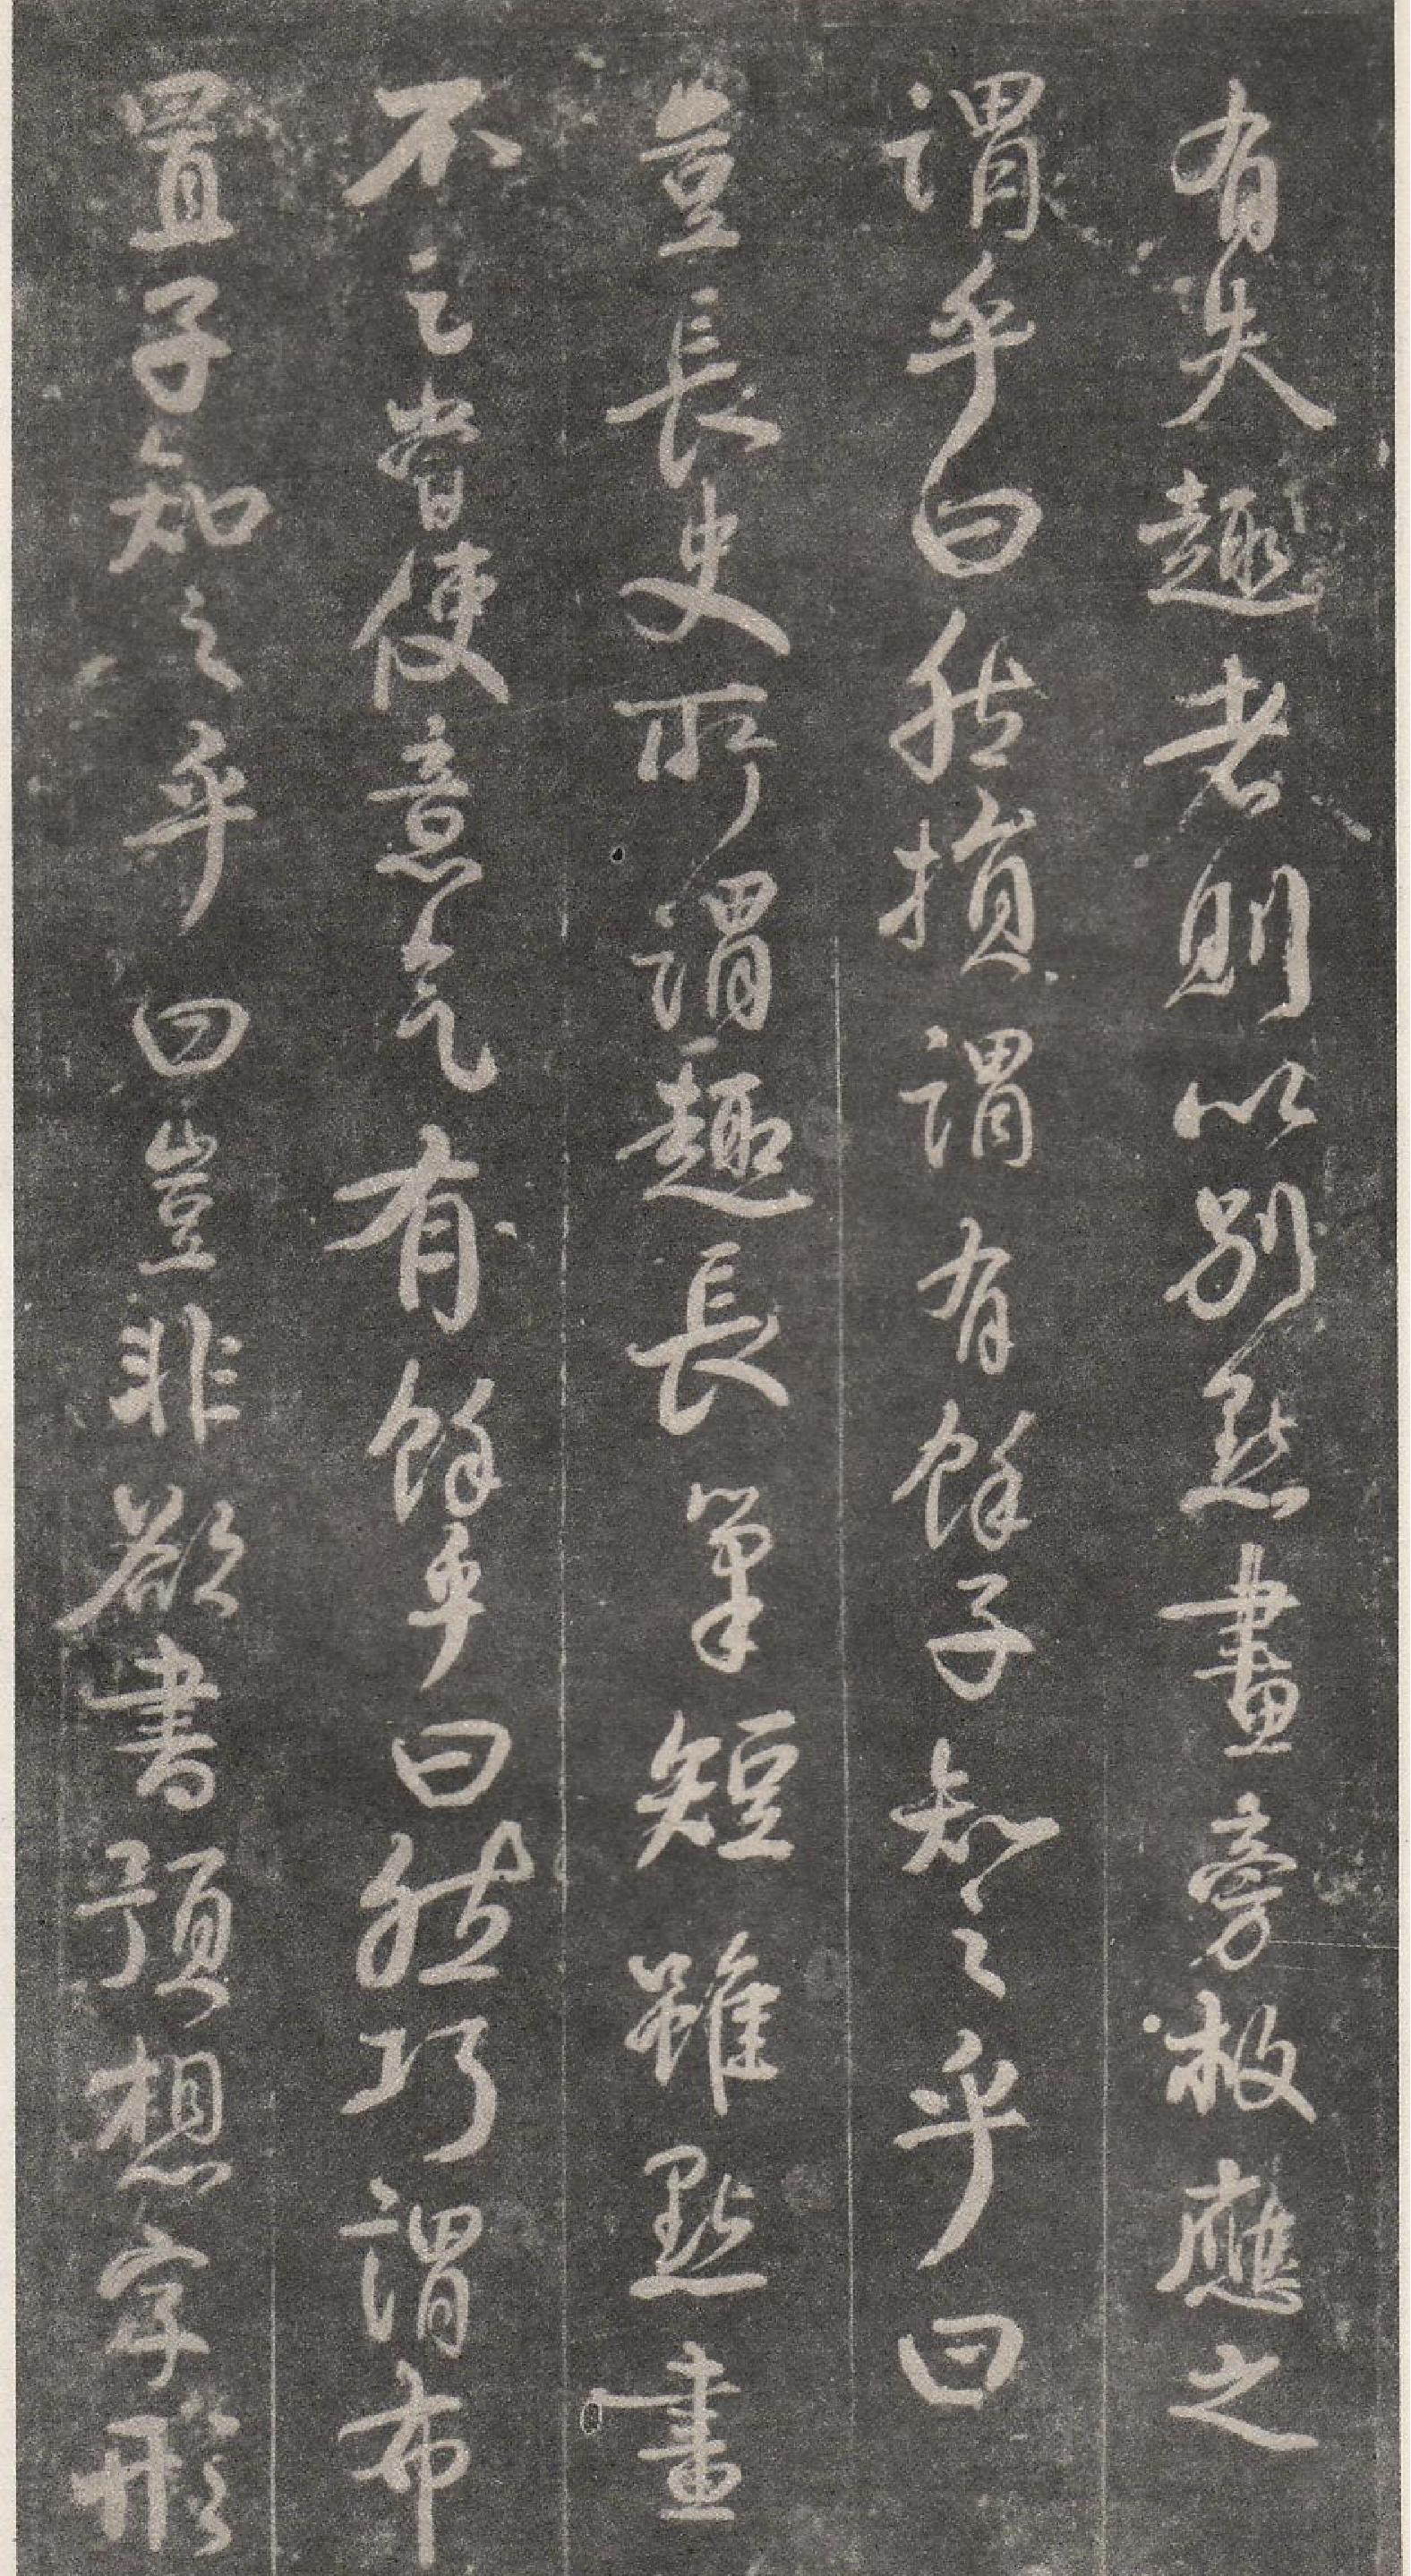 有失趣者則以別點畫旁救應之
謂乎曰然損謂有餘子知之乎曰
豈長史所謂趣長筆短雖點畫
不之者使意氣有餘乎曰然巧謂布
置子知之乎曰豈非欲書預想字形